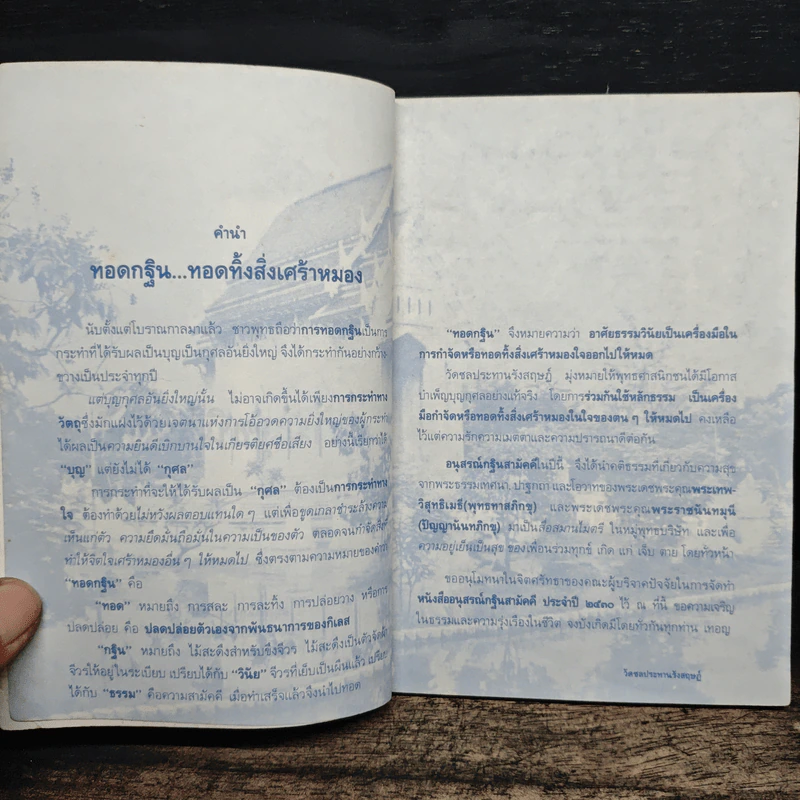 คำนำ
ทอดกฐิน...ทอดทิ้งสิ่งเศร้าหมอง
นับตั้งแต่โบราณกาลมาแล้ว ชาวพุทธถือว่าการทอดกฐินเป็นการ
กระทำที่ได้รับผลเป็นบุญเป็นกุศลอันยิ่งใหญ่ จึงได้กระทำกันอย่างกว้าง
ขวางเป็นประจำทุกปี
แต่บุญกุศลอันยิ่งใหญ่นั้น ไม่อาจเกิดขึ้นได้เพียงการกระทำทาง
วัตถุซึ่งมักแฝงไว้ด้วยเจตนาแห่งการโอ้อวดความยิ่งใหญ่ของผู้กระทำ
ได้ผลเป็นความยินดีเบิกบานใจในเกียรติยศชื่อเสียง อย่างนี้เรียกว่าได้
"บุญ" แต่ยังไม่ได้ "กุศล"
การกระทำที่จะให้ได้รับผลเป็น "กุศล" ต้องเป็นการกระทำทาง
ใจ ต้องทำด้วยไม่หวังผลตอบแทนใด ๆ แต่เพื่อขูดเกลาชำระล้างความ
เห็นแก่ตัว ความยึดมั่นถือมั่นในความเป็นของตัว ตลอดจนกำจัดสิ่งที่
ทำให้จิตใจเศร้าหมองอื่น ๆ ให้หมดไป ซึ่งตรงตามความหมายของคำว่า
"ทอดกฐิน" คือ
"ทอด" หมายถึง การสละ การละทิ้ง การปล่อยวาง หรือการ
ปลดปล่อย คือ ปลดปล่อยตัวเองจากพันธนาการของกิเลส
"กฐิน" หมายถึง ไม้สะดึงสำหรับขึงจีวร ไม้สะดึงเป็นตัวจัดผ้า
จีวรให้อยู่ในระเบียบ เปรียบได้กับ "วินัย" จีวรที่เย็บเป็นผืนแล้ว เปรียบ
ได้กับ "ธรรม" คือความสามัคคี เมื่อทำเสร็จแล้วจึงนำไปทอด
"ทอดกฐิน" จึงหมายความว่า อาศัยธรรมวินัยเป็นเครื่องมือใน
การกำจัดหรือทอดทิ้งสิ่งเศร้าหมองใจออกไปให้หมด
วัดชลประทานรังสฤษฎ์ มุ่งหมายให้พุทธศาสนิกชนได้มีโอกาส
บำเพ็ญบุญกุศลอย่างแท้จริง โดยการร่วมกันใช้หลักธรรม เป็นเครื่อง
มือกำจัดหรือทอดทิ้งสิ่งเศร้าหมองในใจของตน ๆ ให้หมดไป คงเหลือ
ไว้แต่ความรักความเมตตาและความปรารถนาดีต่อกัน
อนุสรณ์กฐินสามัคคีในปีนี้ จึงได้นำคติธรรมที่เกี่ยวกับความสุข
จากพระธรรมเทศนา ปาฐกถา และโอวาทของพระเดชพระคุณพระเทพ-
วิสุทธิเมธี(พุทธทาสภิกขุ) และพระเดชพระคุณพระราชนันทมุนี
(ปัญญานันทภิกขุ) มาเป็นสื่อสมานไมตรี ในหมู่พุทธบริษัท และเพื่อ
ความอยู่เย็นเป็นสุข ของเพื่อนร่วมทุกข์ เกิด แก่ เจ็บ ตาย โดยทั่วหน้า
ขออนุโมทนาในจิตศรัทธาของคณะผู้บริจาคปัจจัยในการจัดทำ
หนังสืออนุสรณ์กฐินสามัคคี ประจำปี ๒๕๓๐ ไว้ ณ ที่นี้ ขอความเจริญ
ในธรรมและความรุ่งเรืองในชีวิต จงบังเกิดมีโดยทั่วกันทุกท่าน เทอญ
วัดชลประทานรังสฤษฎ์